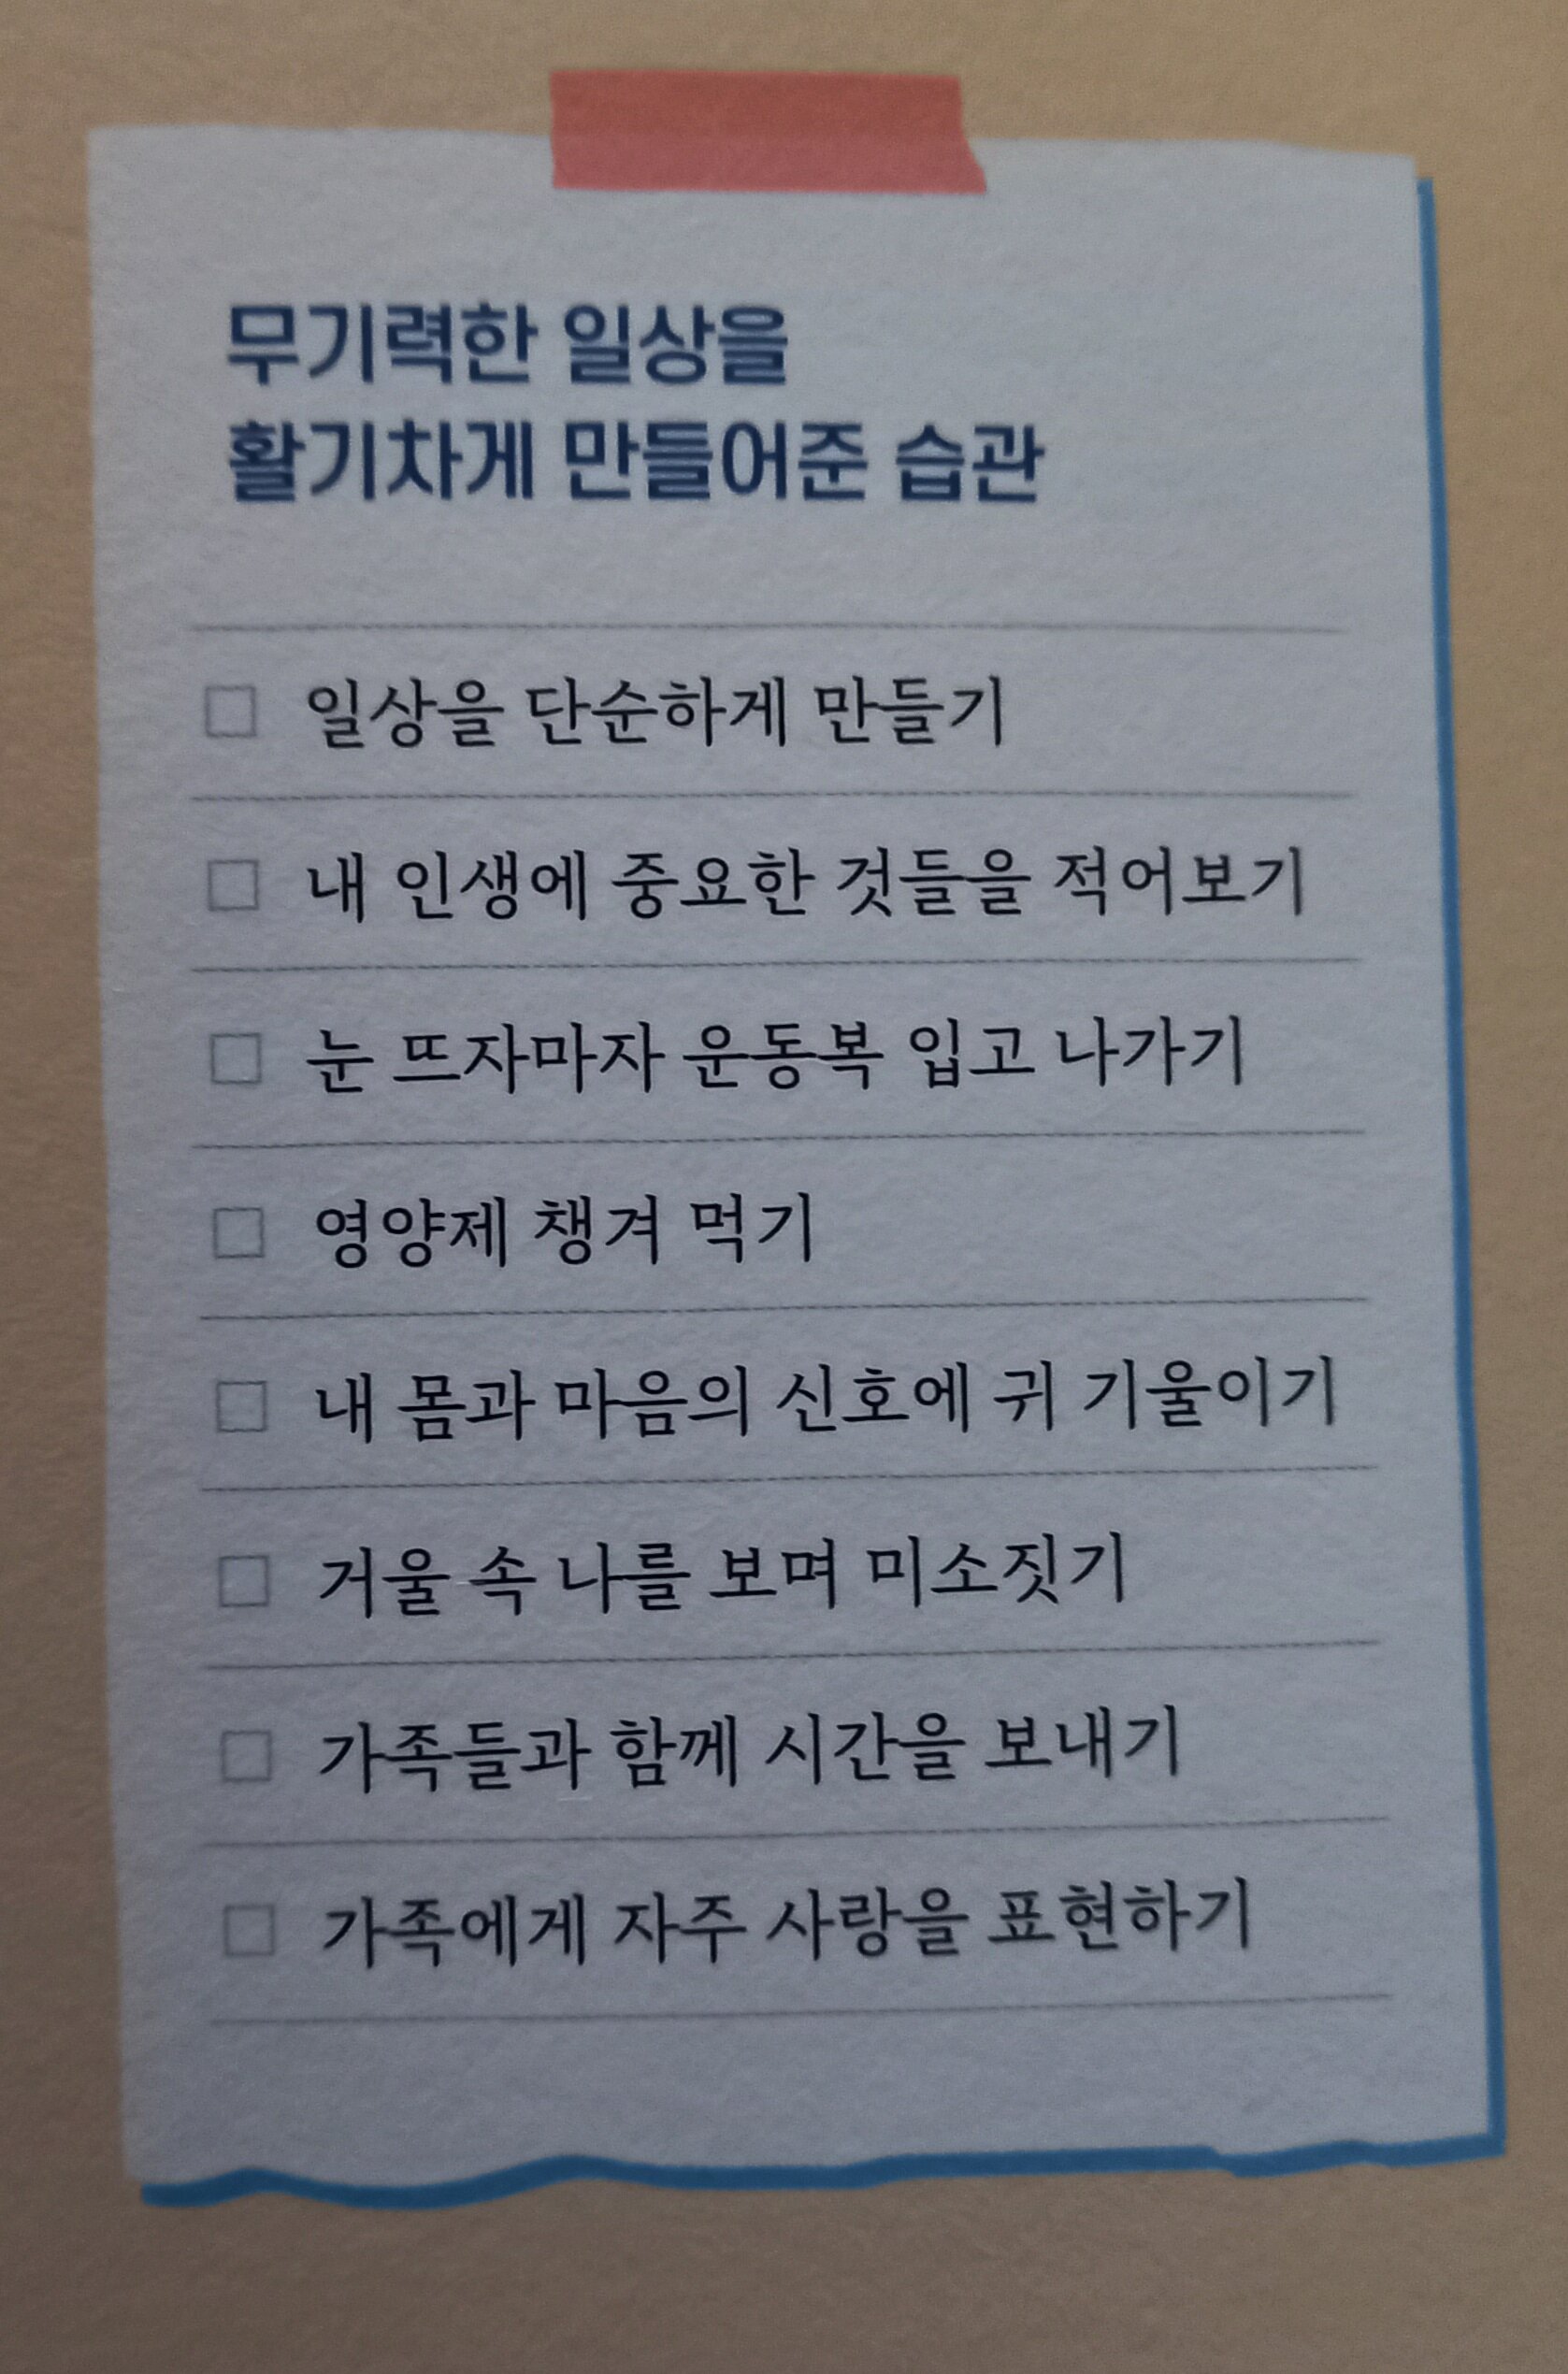 무기력한 일상을
활기차게 만들어준 습관
□ 일상을 단순하게 만들기
□ 내 인생에 중요한 것들을 적어보기
□ 눈 뜨자마자 운동복 입고 나가기
□ 영양제 챙겨 먹기
□ 내 몸과 마음의 신호에 귀 기울이기
□ 거울 속 나를 보며 미소짓기
□ 가족들과 함께 시간을 보내기
□ 가족에게 자주 사랑을 표현하기